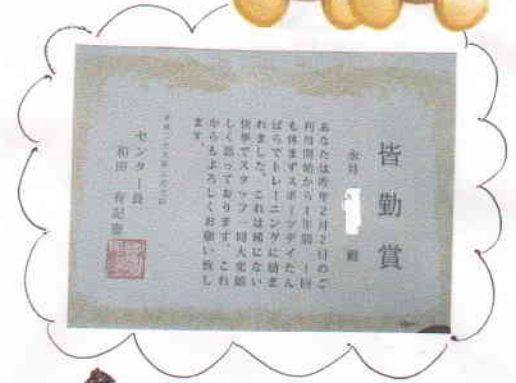 皆勤賞
永井 殿
あなたは昨年2月2日のご
利用開始から1年間、一回
も休まずスポーツデイたん
ぽらでトレーニングに励ま
れました。これは稀にない
快挙でスタッフ一同大変嬉
しく思っております。これ
からもよろしくお願い致し
ます。
センター長
和田 有記